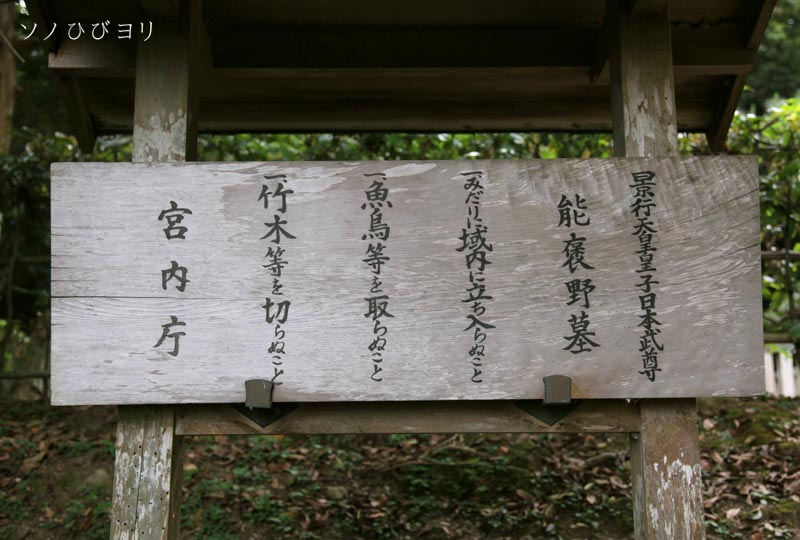 ソノひびヨリ
景行天皇皇子日本武尊
能褒野墓
一、みだりに域内に立ち入らぬこと
一、魚鳥等を取らぬこと
一、竹木等を切らぬこと
宮内庁